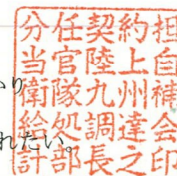 分任契約担
当官陸上自
衛隊九州補
給処調達会
計部長之印
り
れたい。